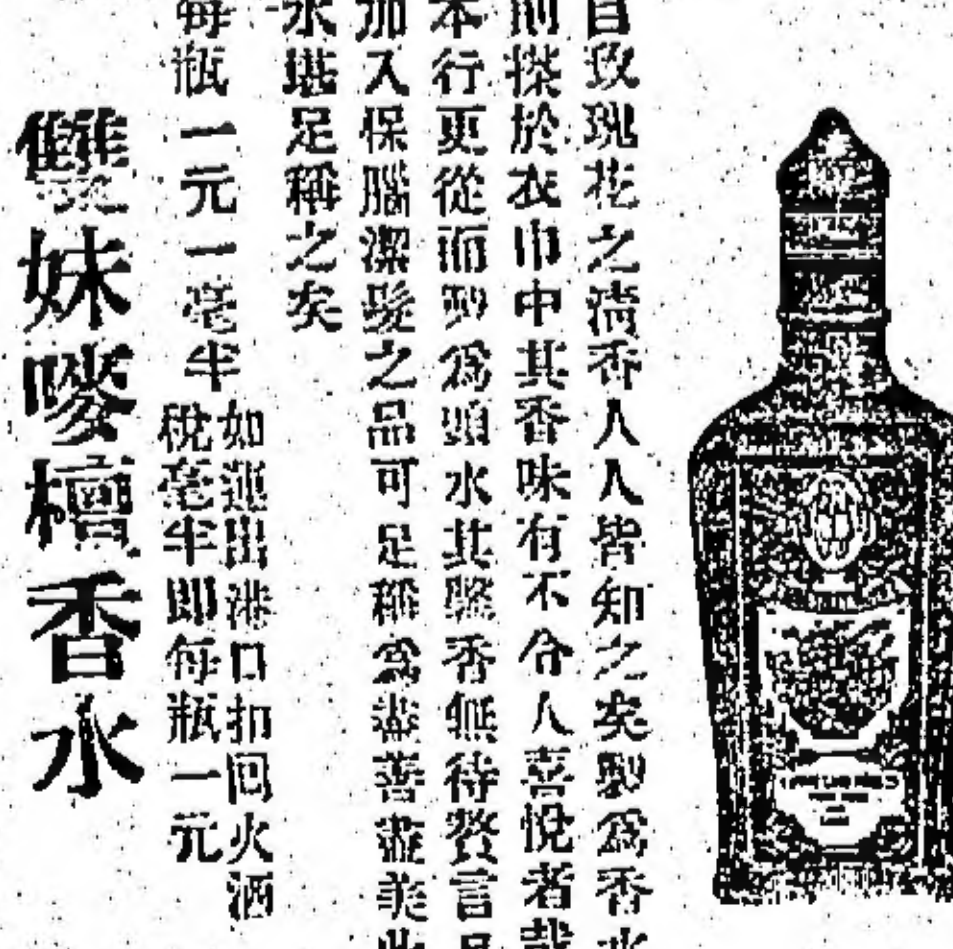 自玫瑰花之清香人人皆知之矣製為香水
則搽於衣巾中其香味有不令人喜悅者哉
本行更從而製為頭水其馨香無待贅言且
加入保腦潔髮之品可足稱為盡善盡美此
水堪足稱之矣
每瓶一元一毫半
如運出港口扣回火酒
稅毫半即每瓶一元
雙妹嘜檀香水